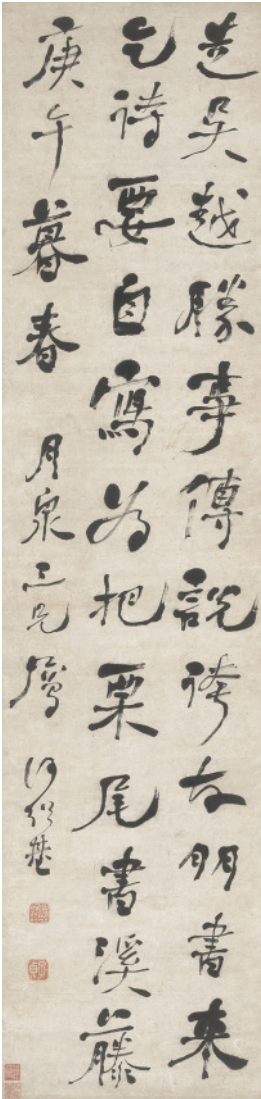 送吳越勝事傳說誇友朋書來
乞詩要自寫為把栗尾書溪藤
庚午暮春
月泉三兄屬
何紹基